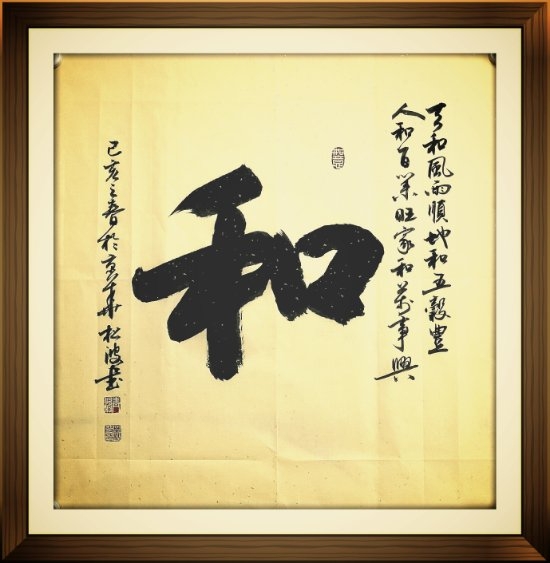 天和風雨順地和五穀豐
人和百業旺家和萬事興
和
己亥之春於京華松波書